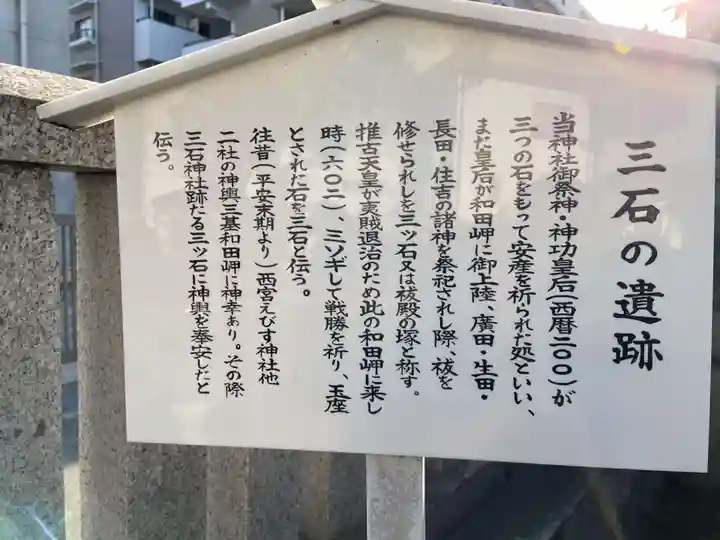 三石の遺跡
当神社御祭神・神功皇后(西暦二〇〇)が
三つの石をもって安産を祈られた処といい、
まだ皇后が和田岬に御上陸、廣田・生田・
長田・住吉の諸神を祭祀されし際、祓を
修せられしを三ッ石又は祓殿の塚と称す。
推古天皇が夷賊退治のため此の和田岬に来し
時(六〇二)、ミソギして戦勝を祈り、玉座
とされた石を三石と伝う。
往昔(平安末期より)西宮えびす神社他
二社の神輿三基和田岬に神幸あり。その際
三石神社跡たる三ッ石に神輿を奉安したと
伝う。